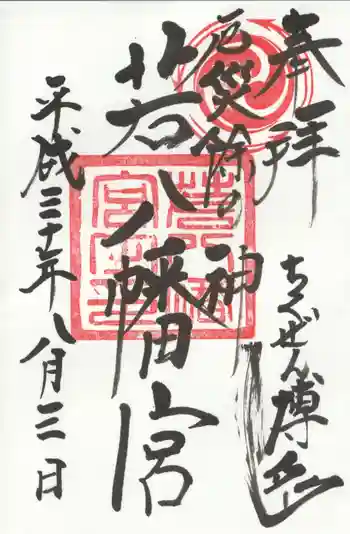 奉拝
ちくぜん博多
厄災除の神
若八幡宮
平成三十年八月三日
若八幡宮